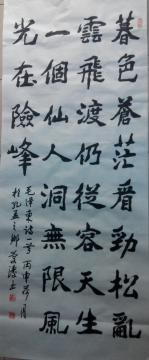 暮色蒼茫看勁松亂
雲飛渡仍從容天生
一個仙人洞無限風
光在險峰
毛澤東詩一首丙申年
於孔孟之鄉